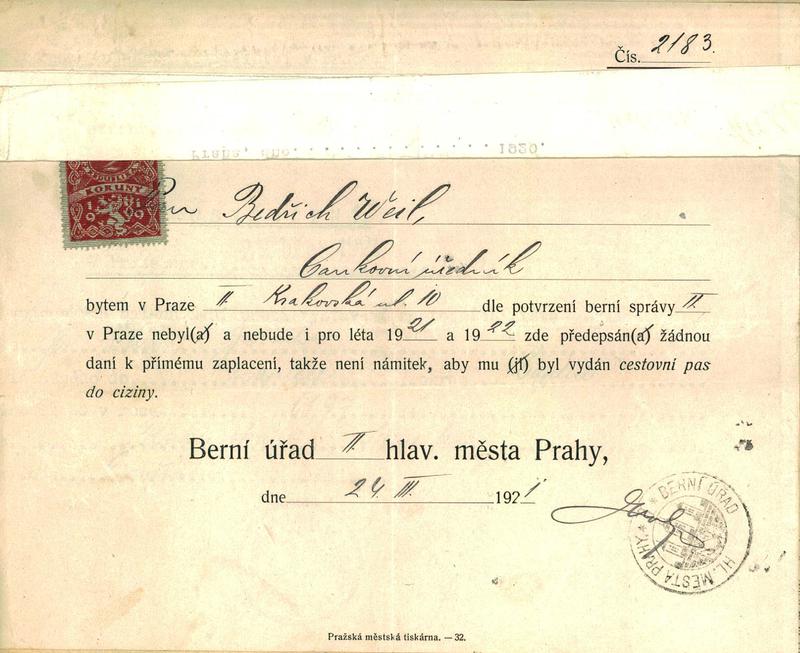 Čís. 2183.
Praha, dne 1920.
KORUNY
1919
Pan Bedřich Weil,
bankovní úředník
bytem v Praze II. Krakovská ul. 10 dle potvrzení berní správy II.
v Praze nebyl(a) a nebude i pro léta 1921 a 1922 zde předepsán(a) žádnou
daní k přímému zaplacení, takže není námitek, aby mu (jí) byl vydán cestovní pas
do ciziny.
Berní úřad II. hlav. města Prahy,
dne 24. III. 1921
BERNÍ ÚŘAD HL. MĚSTA PRAHY.
Pražská městská tiskárna. — 32.